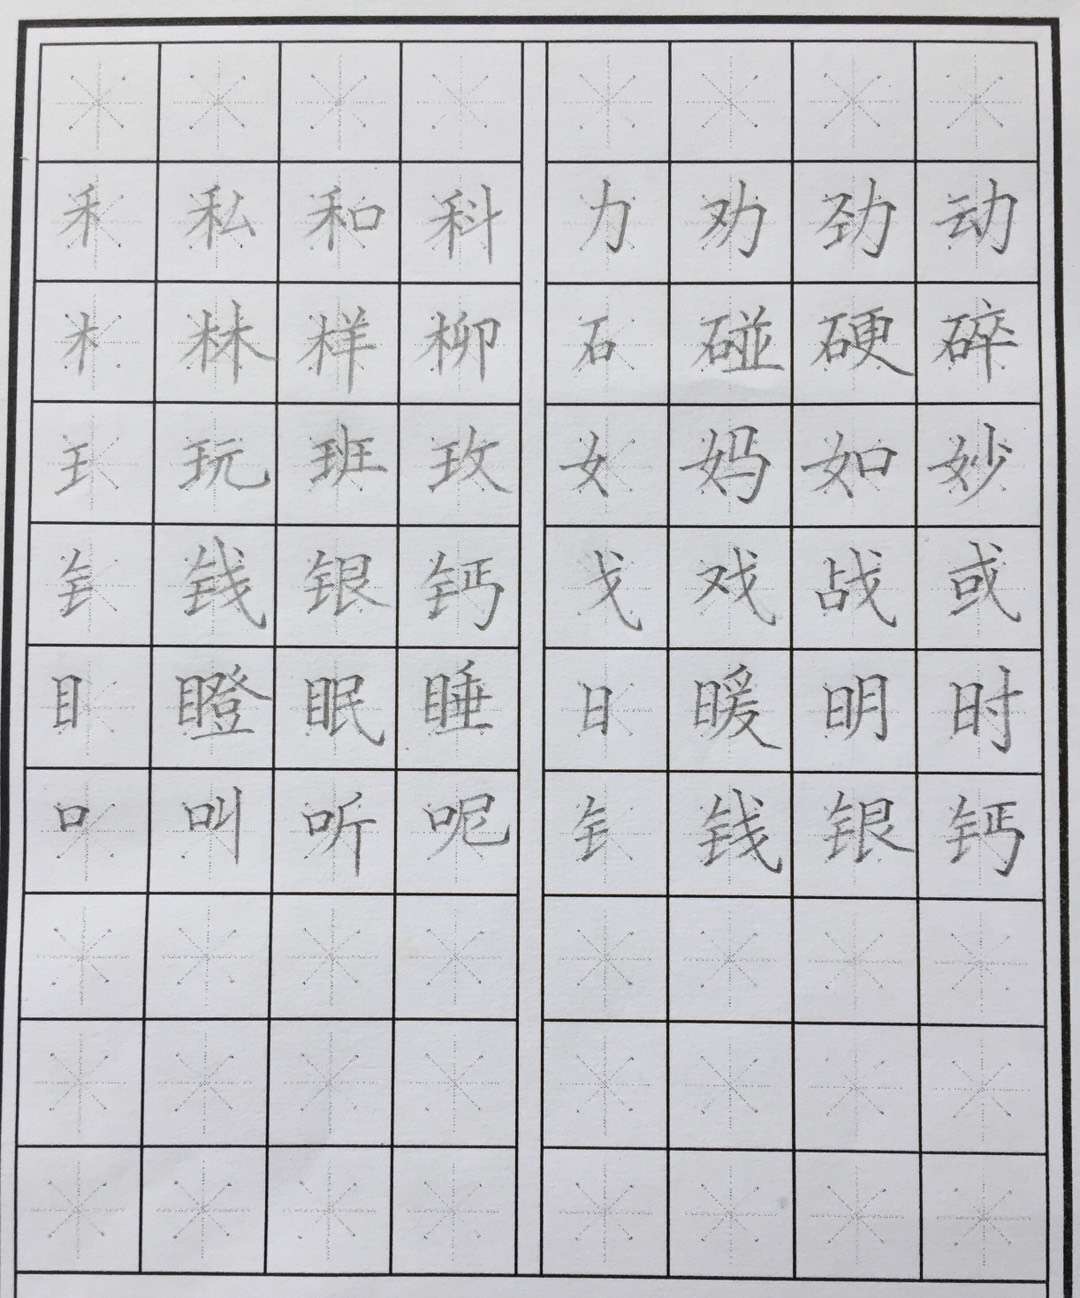 禾 私 和 科 力 劝 劲 动
木 林 样 柳 石 碰 硬 碎
王 玩 班 玫 女 妈 如 妙
钅 钱 银 钙 戈 戏 战 或
目 瞪 眠 睡 日 暖 明 时
口 叫 听 呢 钅 钱 银 钙